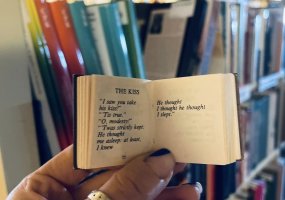 THE KISS
"I saw you take
his kiss!"
"'Tis true."
"O, modesty!"
"'Twas strictly kept:
He thought
me asleep: at
least, I knew
He thought
I thought he thought
I slept."